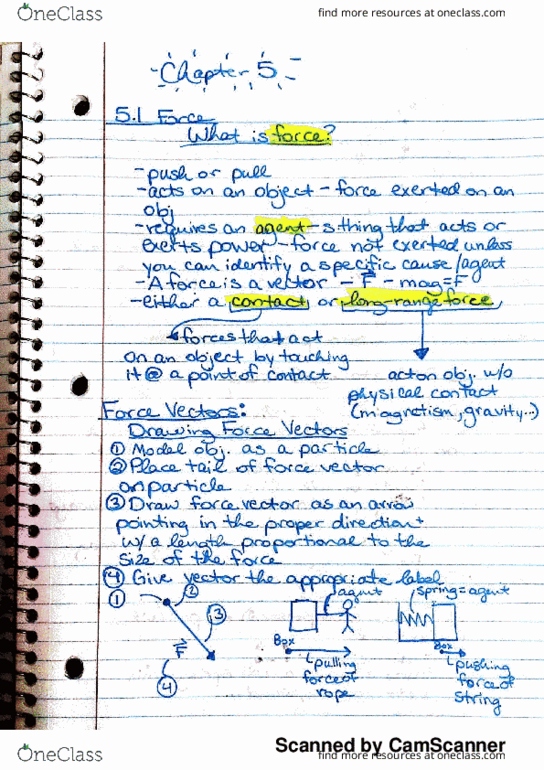 OneClass
find more resources at oneclass.com
Chapter 5
5.1 Force
What is force?
-push or pull
-acts on an object - force exerted on an
obj
-requires an agent - s.thing that acts or
exerts power - force not exerted unless
you can identify a specific cause/agent
-A force is a vector - F⃗ - mag=F
-either a contact or long-range force,
forces that act
on an object by touching
it @ a point of contact
act on obj. w/o
physical contact
(magnetism, gravity...)
Force Vectors:
Drawing Force Vectors
① Model obj. as a particle
② Place tail of force vector
on particle
③ Draw force vector as an arrow
pointing in the proper direction +
w/ a length proportional to the
size of the force
④ Give vector the appropriate label
① ② ③ F⃗ ④
agent
Box
pulling
force of
rope
spring=agent
Box
pushing
force of
string
Scanned by CamScanner
OneClass
find more resources at oneclass.com